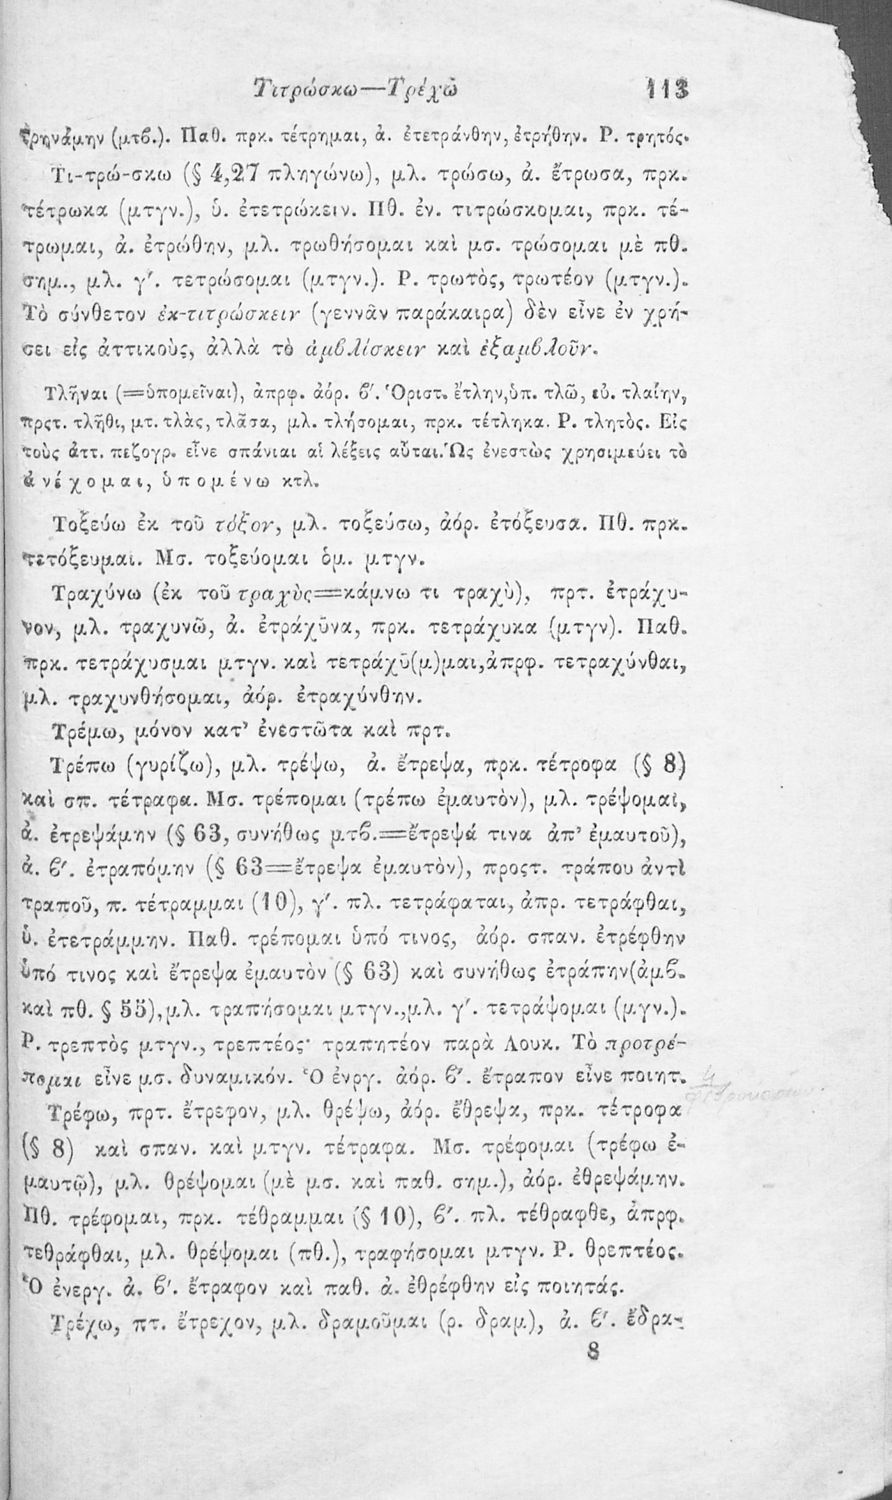 Τιτρώσκω—Τρέχω 113
τρηνάμην (μτϐ.). Παθ. πρκ. τέτρημαι, ἀ. ἐτετράνθην, ἐτρήθην. Ρ. τρητός.
Τι-τρώ-σκω (§ 4,27 πληγώνω), μλ. τρώσω, ἀ. ἔτρωσα, πρκ.
τέτρωκα (μτγν.), ὑ. ἐτετρώκειν. Πθ. ἐν. τιτρώσκομαι, πρκ. τέ-
τρωμαι, ἀ. ἐτρώθην, μλ. τρωθήσομαι καὶ μσ. τρώσομαι μὲ πθ.
σημ., μλ. γ′. τετρώσομαι (μτγν.). Ρ. τρωτὸς, τρωτέον (μτγν.).
Τὸ σύνθετον ἐκ-τιτρώσκειν (γεννᾶν παράκαιρα) δὲν εἶνε ἐν χρή-
σει εἰς ἀττικοὺς, ἀλλὰ τὸ ἀμϐλίσκειν καὶ ἐξαμϐλοῦν.
Τλῆναι (=ὑπομεῖναι), ἀπρφ. ἀόρ. ϐ′. Ὁριστ. ἔτλην, ὑπ. τλῶ, εὐ. τλαίην,
πρςτ. τλῆθι, μτ. τλὰς, τλᾶσα, μλ. τλήσομαι, πρκ. τέτληκα. Ρ. τλητὸς. Εἰς
τοὺς ἀττ. πεζογρ. εἶνε σπάνιαι αἱ λέξεις αὗται. Ὡς ἐνεστὼς χρησιμεύει τὸ
ἀνέχομαι, ὑπομένω κτλ.
Τοξεύω ἐκ τοῦ τόξον, μλ. τοξεύσω, ἀόρ. ἐτόξευσα. Πθ. πρκ.
τετόξευμαι. Μσ. τοξεύομαι ὁμ. μτγν.
Τραχύνω (ἐκ τοῦ τραχὺς=κάμνω τι τραχὺ), πρτ. ἐτράχυ-
νον, μλ. τραχυνῶ, ἀ. ἐτράχῡνα, πρκ. τετράχυκα (μτγν). Παθ.
πρκ. τετράχυσμαι μτγν. καὶ τετράχῡ(μ)μαι, ἀπρφ. τετραχύνθαι,
μλ. τραχυνθήσομαι, ἀόρ. ἐτραχύνθην.
Τρέμω, μόνον κατ’ ἐνεστῶτα καὶ πρτ.
Τρέπω (γυρίζω), μλ. τρέψω, ἀ. ἔτρεψα, πρκ. τέτροφα (§ 8)
καὶ σπ. τέτραφα. Μσ. τρέπομαι (τρέπω ἐμαυτὸν), μλ. τρέψομαι,
ἀ. ἐτρεψάμην (§ 63, συνήθως μτϐ.=ἔτρεψά τινα ἀπ’ ἐμαυτοῦ),
ἀ. ϐ′. ἐτραπόμην (§ 63=ἔτρεψα ἐμαυτὸν), προςτ. τράπου ἀντὶ
τραποῦ, π. τέτραμμαι (10), γ′. πλ. τετράφαται, ἀπρ. τετράφθαι,
ὑ. ἐτετράμμην. Παθ. τρέπομαι ὑπό τινος, ἀόρ. σπαν. ἐτρέφθην
ὑπό τινος καὶ ἔτρεψα ἐμαυτὸν (§ 63) καὶ συνήθως ἐτράπην (ἀμϐ.
καὶ πθ. § 55), μλ. τραπήσομαι μτγν., μλ. γ′. τετράψομαι (μγν.).
Ρ. τρεπτὸς μτγν., τρεπτέος· τραπητέον παρὰ Λουκ. Τὸ προτρέ-
πομαι εἶνε μσ. δυναμικόν. Ὁ ἐνργ. ἀόρ. ϐ′. ἔτραπον εἶνε ποιητ.
Τρέφω, πρτ. ἔτρεφον, μλ. θρέψω, ἀόρ. ἔθρεψα, πρκ. τέτροφα
(§ 8) καὶ σπαν. καὶ μτγν. τέτραφα. Μσ. τρέφομαι (τρέφω ἐ-
μαυτῷ), μλ. θρέψομαι (μὲ μσ. καὶ παθ. σημ.), ἀόρ. ἐθρεψάμην.
Πθ. τρέφομαι, πρκ. τέθραμμαι (§ 10), ϐ′. πλ. τέθραφθε, ἀπρφ.
τεθράφθαι, μλ. θρέψομαι (πθ.), τραφήσομαι μτγν. Ρ. θρεπτέος.
Ὁ ἐνεργ. ἀ. ϐ′. ἔτραφον καὶ παθ. ἀ. ἐθρέφθην εἰς ποιητάς.
Τρέχω, πτ. ἔτρεχον, μλ. δραμοῦμαι (ρ. δραμ), ἀ. ϐ′. ἔδρα-
8